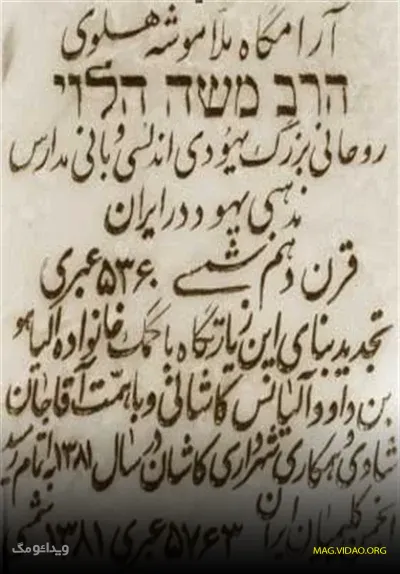 آرامگاه ملا موشه هلوی
הרב משה הלוי
روحانی بزرگ یهودی اندلسی و بانی مدارس
مذهبی یهود در ایران
قرن دهم شمسی ۵۳۶۰ عبری
تجدید بنای این زیارتگاه با کمک خانواده الیاهو
بن داوود آلیانس کاشانی و با همت آقاجان
شادی و همکاری شهرداری کاشان در سال ۱۳۸۱ به اتمام رسید
انجمن کلیمیان ایران
۵۷۶۳ عبری ۱۳۸۱ شمسی
ویدائو مگ
MAG.VIDAO.ORG